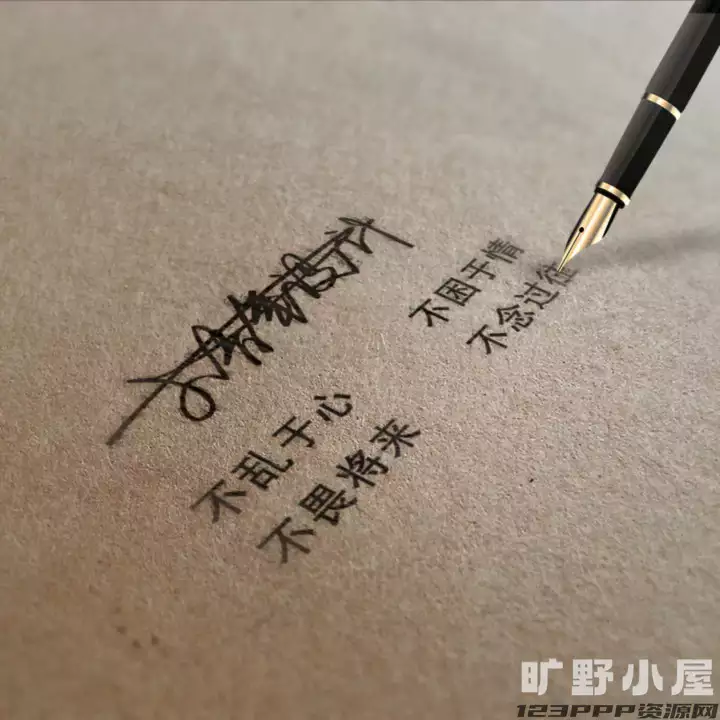 不乱于心
不困于情
不畏将来
不念过往
旷野小屋
123PPP资源网